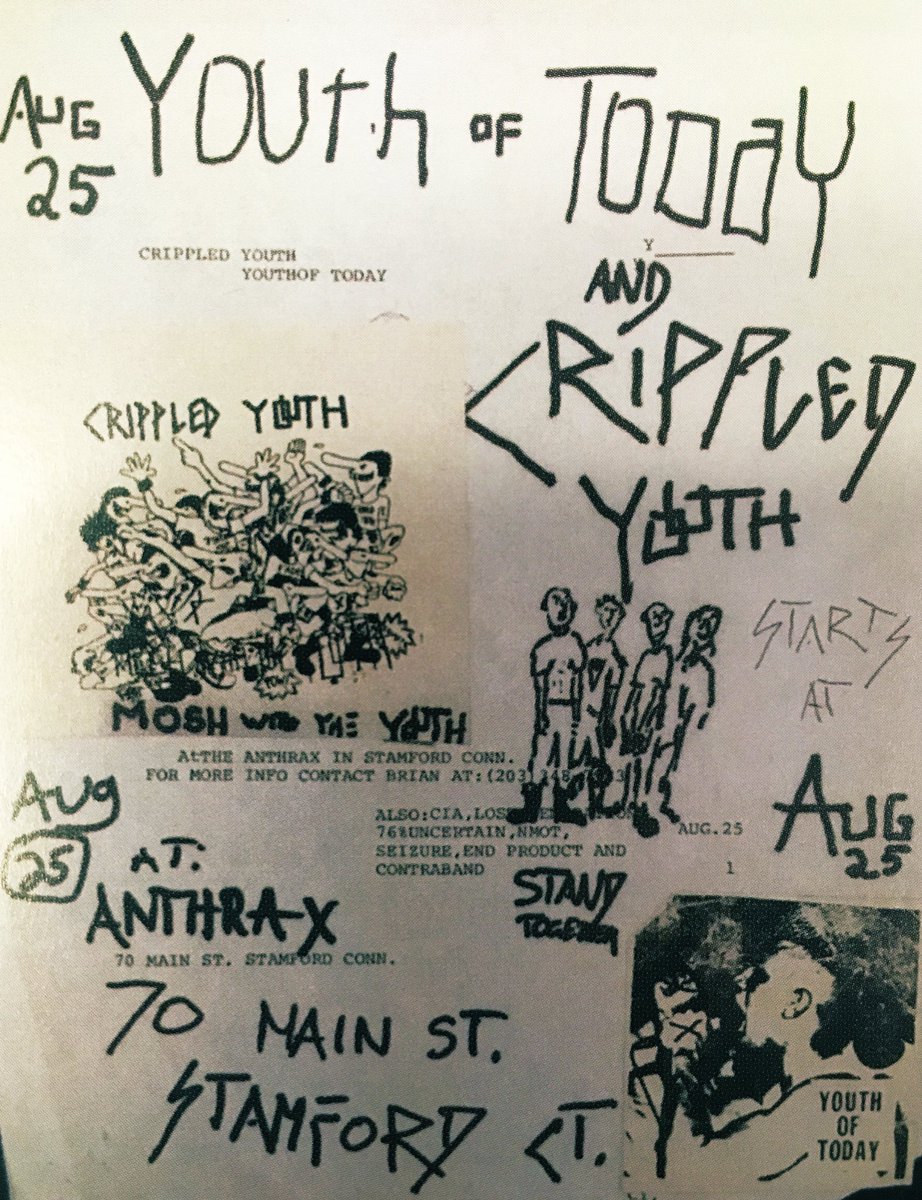 AUG
25
YOUth OF TODAY
CRIPPLED YOUTH
YOUTHOF TODAY
Y
AND
CRIPPLED
YOUTH
CRIPPLED YOUTH
MOSH WITH THE YOUTH
STARTS
AT
AUG
25
AtTHE ANTHRAX IN STAMFORD CONN.
FOR MORE INFO CONTACT BRIAN AT:(203)
ALSO:CIA,
76%UNCERTAIN,NMOT,
SEIZURE,END PRODUCT AND
CONTRABAND
AUG.25
1
Aug
25
AT:
ANTHRAX
70 MAIN ST. STAMFORD CONN.
STAND
TOGETHER
70 MAIN ST.
STAMFORD CT.
YOUTH
OF
TODAY